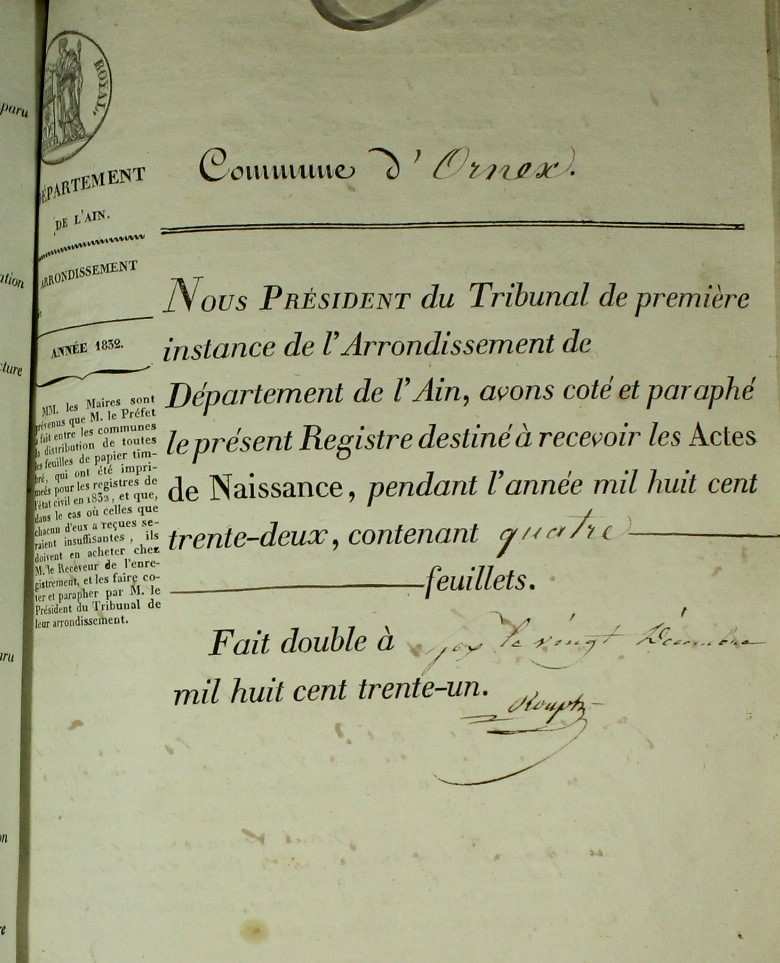 ROYAL.
Commune d'Ornex.
DÉPARTEMENT
DE L'AIN.
ARRONDISSEMENT
ANNÉE 1832.
MM. les Maires sont
prévenus que M. le Préfet
a fait entre les communes
la distribution de toutes
les feuilles de papier tim-
bré, qui ont été impri-
mées pour les registres de
l'état civil en 1832, et que,
dans le cas où celles que
chacun d'eux a reçues se-
raient insuffisantes, ils
doivent en acheter chez
M. le Receveur de l'enre-
gistrement, et les faire co-
ter et parapher par M. le
Président du Tribunal de
leur arrondissement.
NOUS PRÉSIDENT du Tribunal de première
instance de l'Arrondissement de
Département de l'Ain, avons coté et paraphé
le présent Registre destiné à recevoir les Actes
de Naissance, pendant l'année mil huit cent
trente-deux, contenant quatre
feuillets.
Fait double à gex le vingt Décembre
mil huit cent trente-un.
paru
ation
cture
aru
on
re